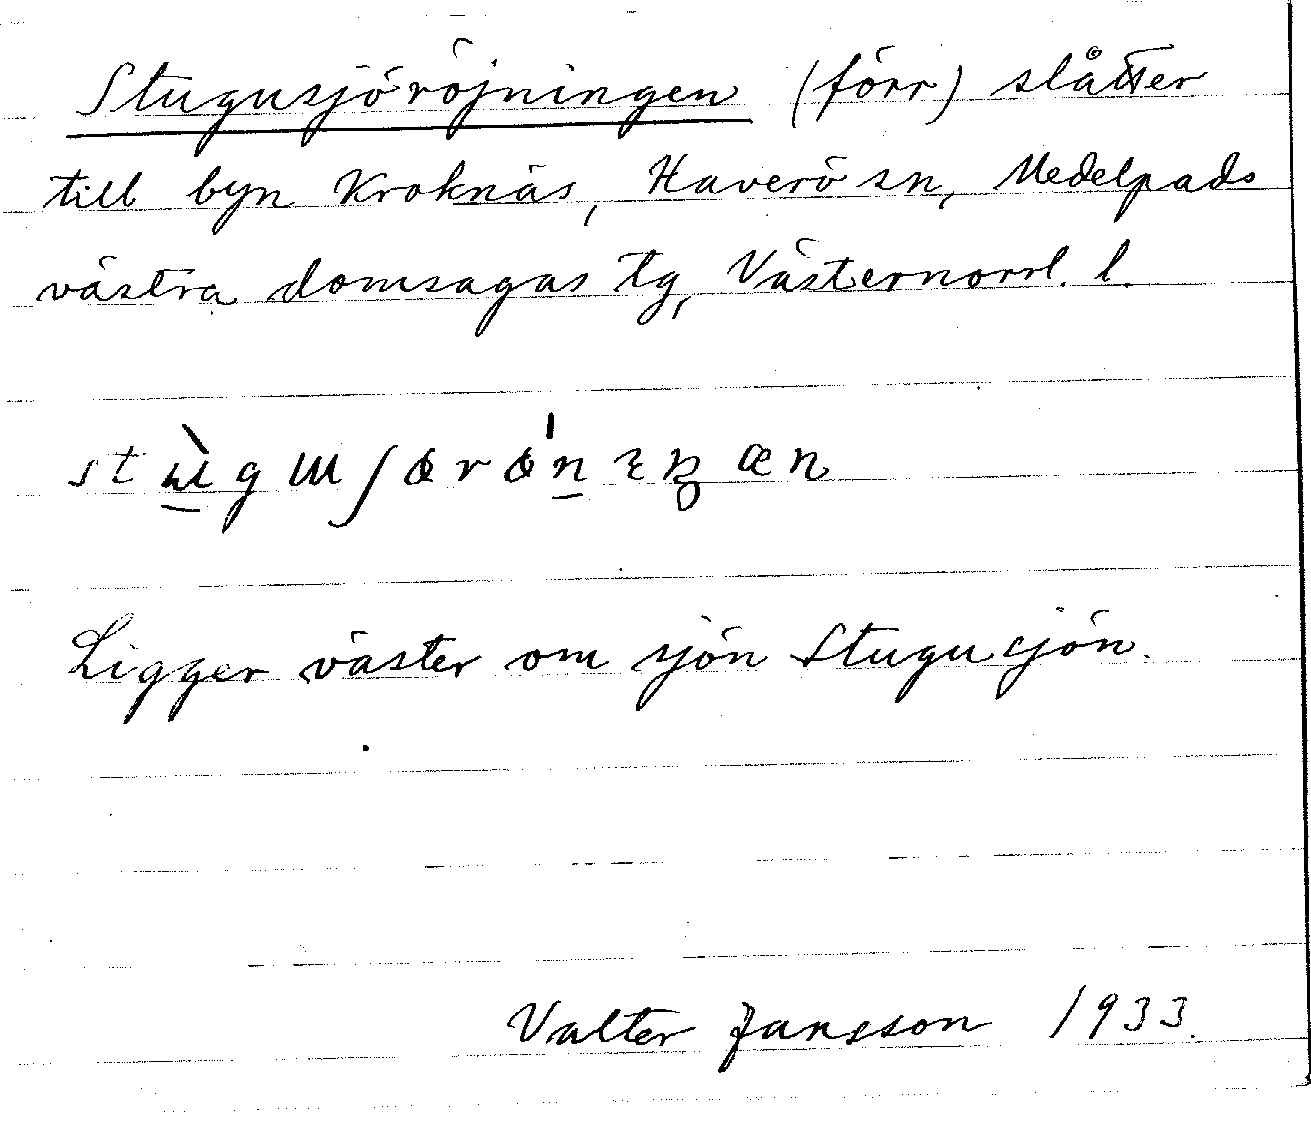 Stugusjöröjningen (förr) slåtter
till byn Kroknäs, Haverö sn, Medelpads
västra domsagas tg, Västernorrl. l.
Ligger väster om sjön Stugusjön.
Valter Jansson 1933.